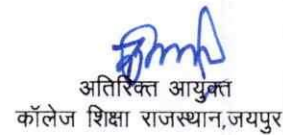 अतिरिक्त आयुक्त
कॉलेज शिक्षा राजस्थान,जयपुर